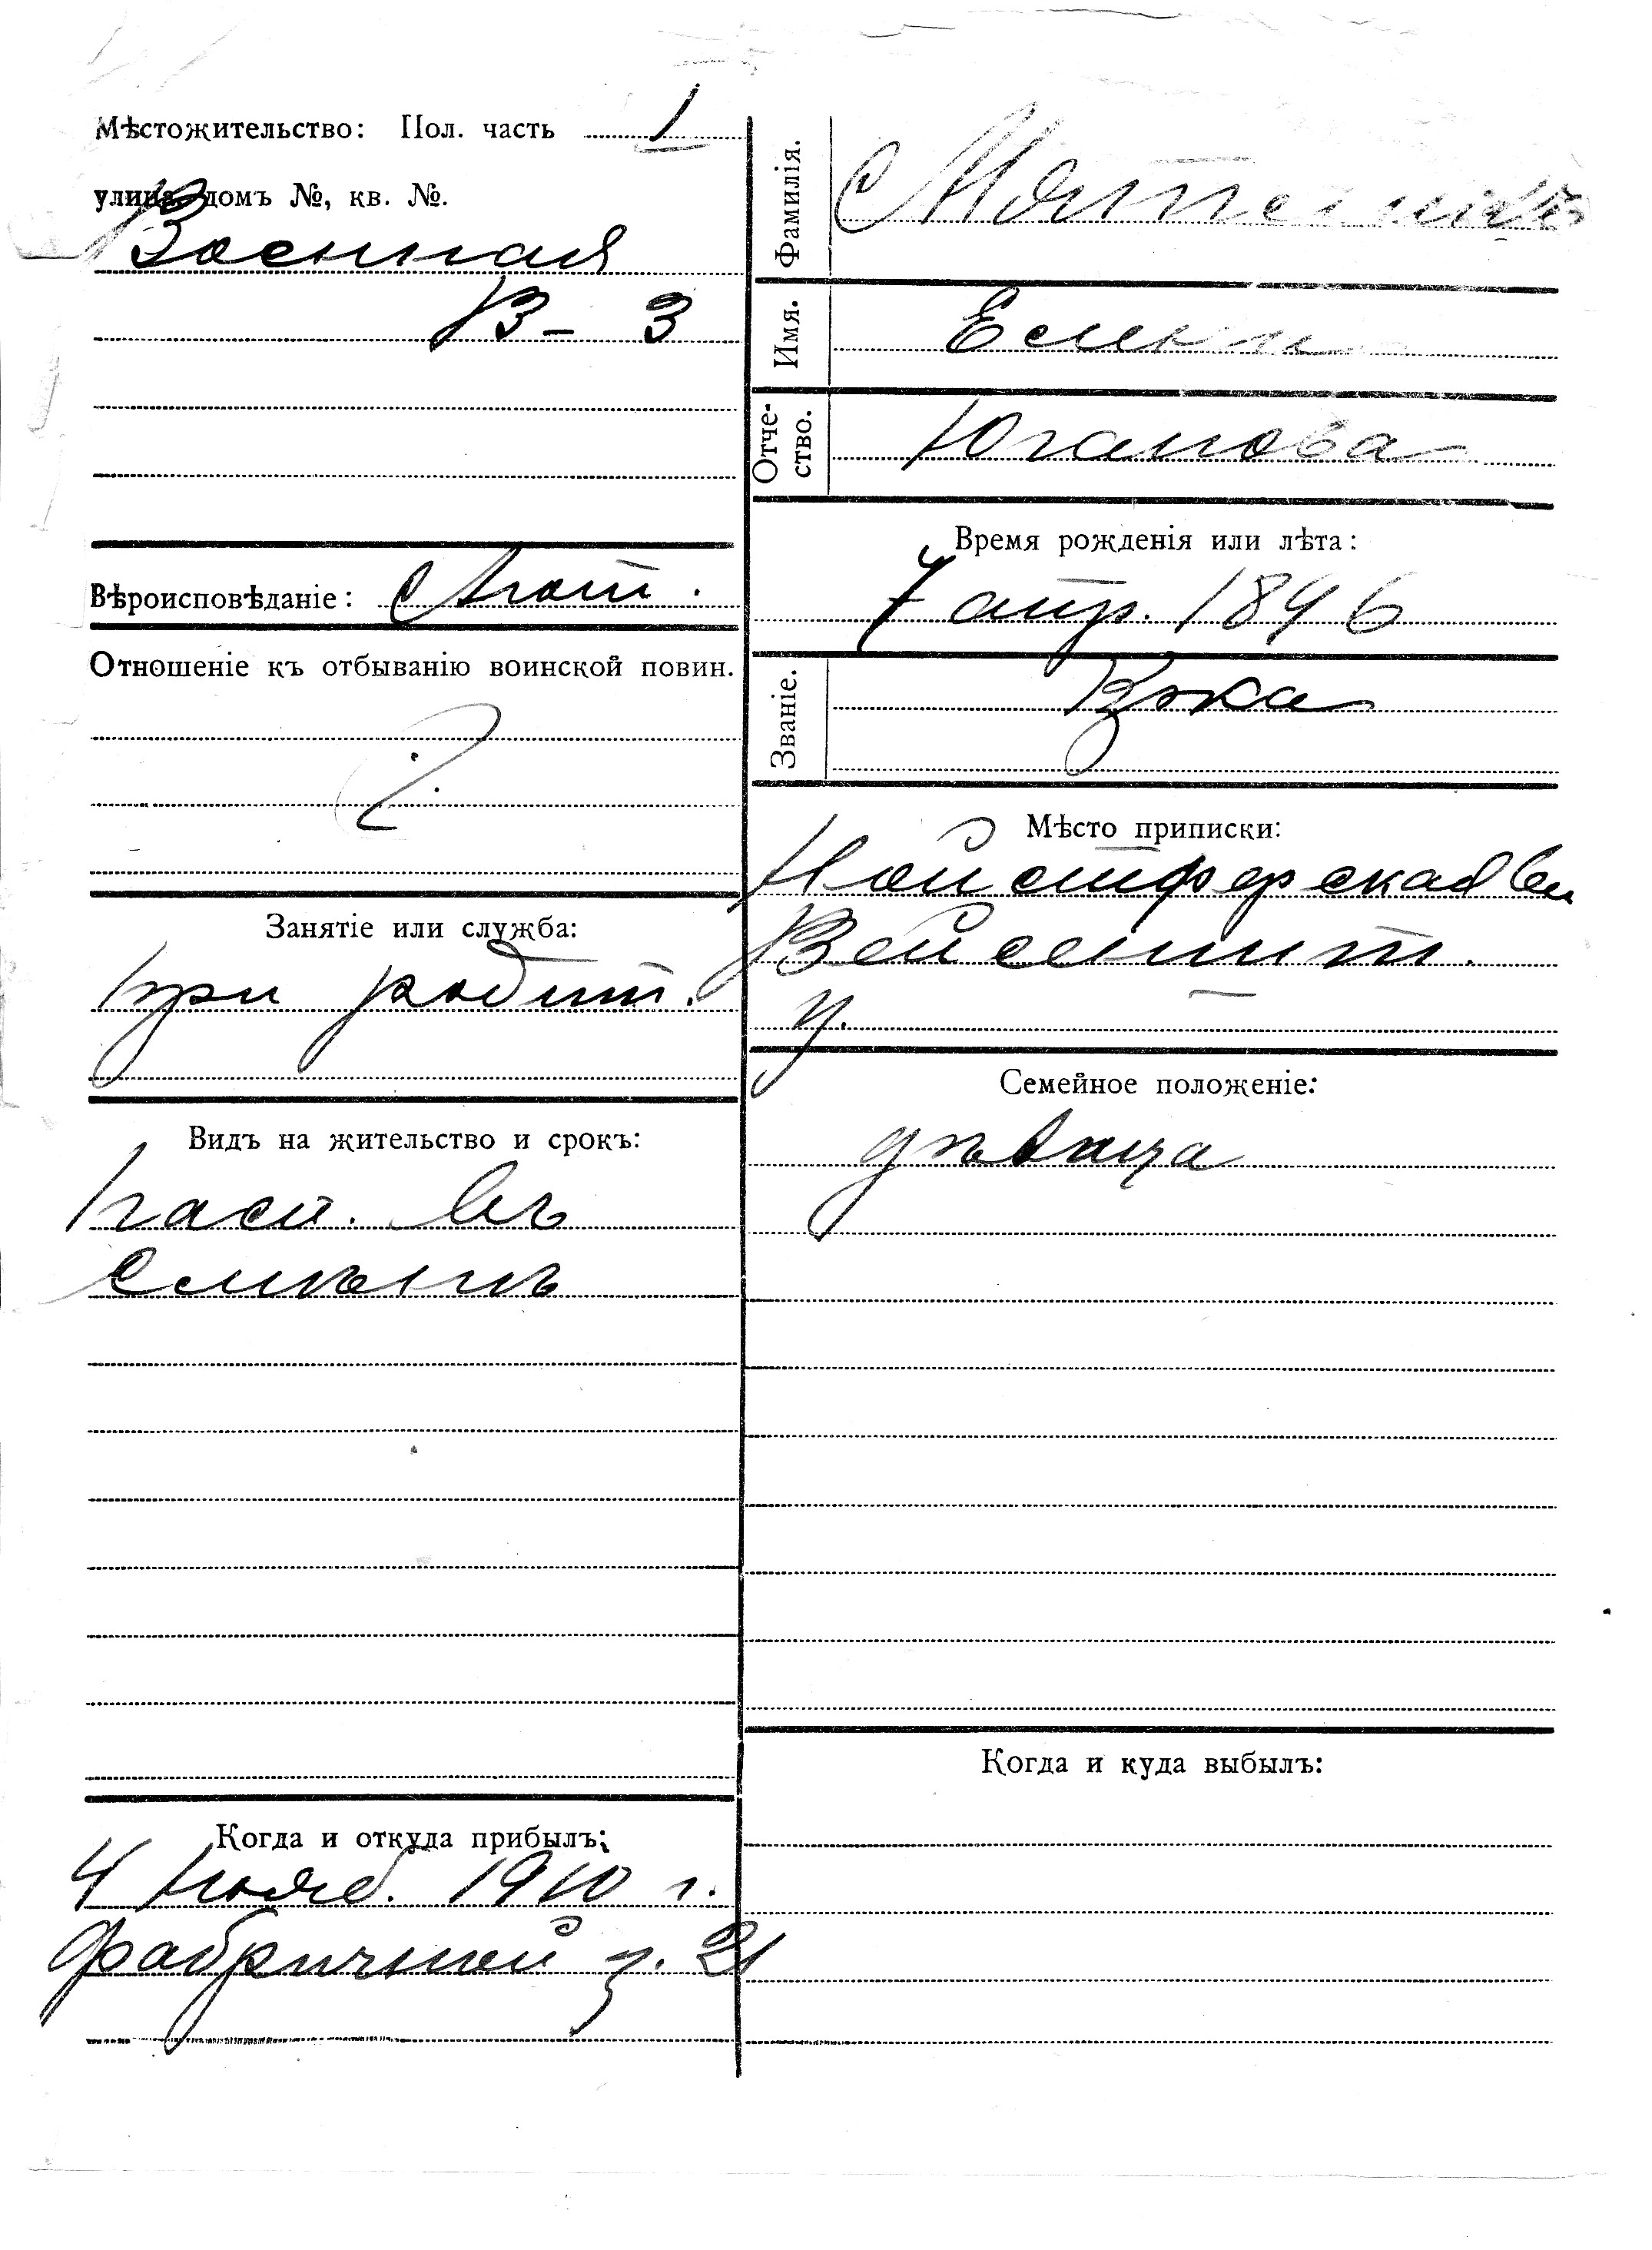 Мѣстожительство: Пол. часть 1
улица, домъ №, кв. №.
Военная
13 - 3
Вѣроисповѣданіе: Лют.
Отношеніе къ отбыванію воинской повин.
Занятіе или служба:
при родит.
Видъ на жительство и срокъ:
пасп. въ
Когда и откуда прибылъ:
4 Нояб. 1910 г.
Фабричной д. 21
Фамилія.
Имя.
Отче-
ство. Юганова
Время рожденія или лѣта:
7 апр. 1896
Званіе. Кр-ка
Мѣсто приписки:
Вейсеншт.
у.
Семейное положеніе:
дѣвица
Когда и куда выбылъ: